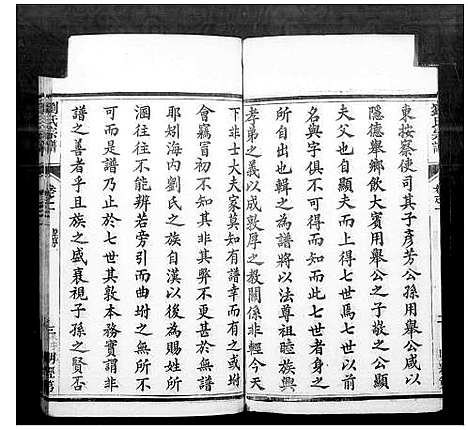 東按察使司其子彥芳公孫用舉公咸以
隱德舉鄉飲大賓用舉公之子敖公公顯
夫父也自顯夫而上得七世焉七世以前
名與字俱不可得而知而此七世者身之
所自出也輯之為譜將以法尊祖睦族興
孝弟之義以成敦厚之教關係非輕今天
下非士大夫家莫知有譜幸而有之或坿
會竊冒初不知其非其弊不更甚於無譜
耶矧海內劉氏之族自漢以後為賜姓所
溷往往不能辨若旁引而曲坿之無所不
至而是譜乃止於七世其敦本務實謂非
譜之善者乎夫族之盛衰視子孫之賢否
劉氏宗譜
卷之一
三
明經第